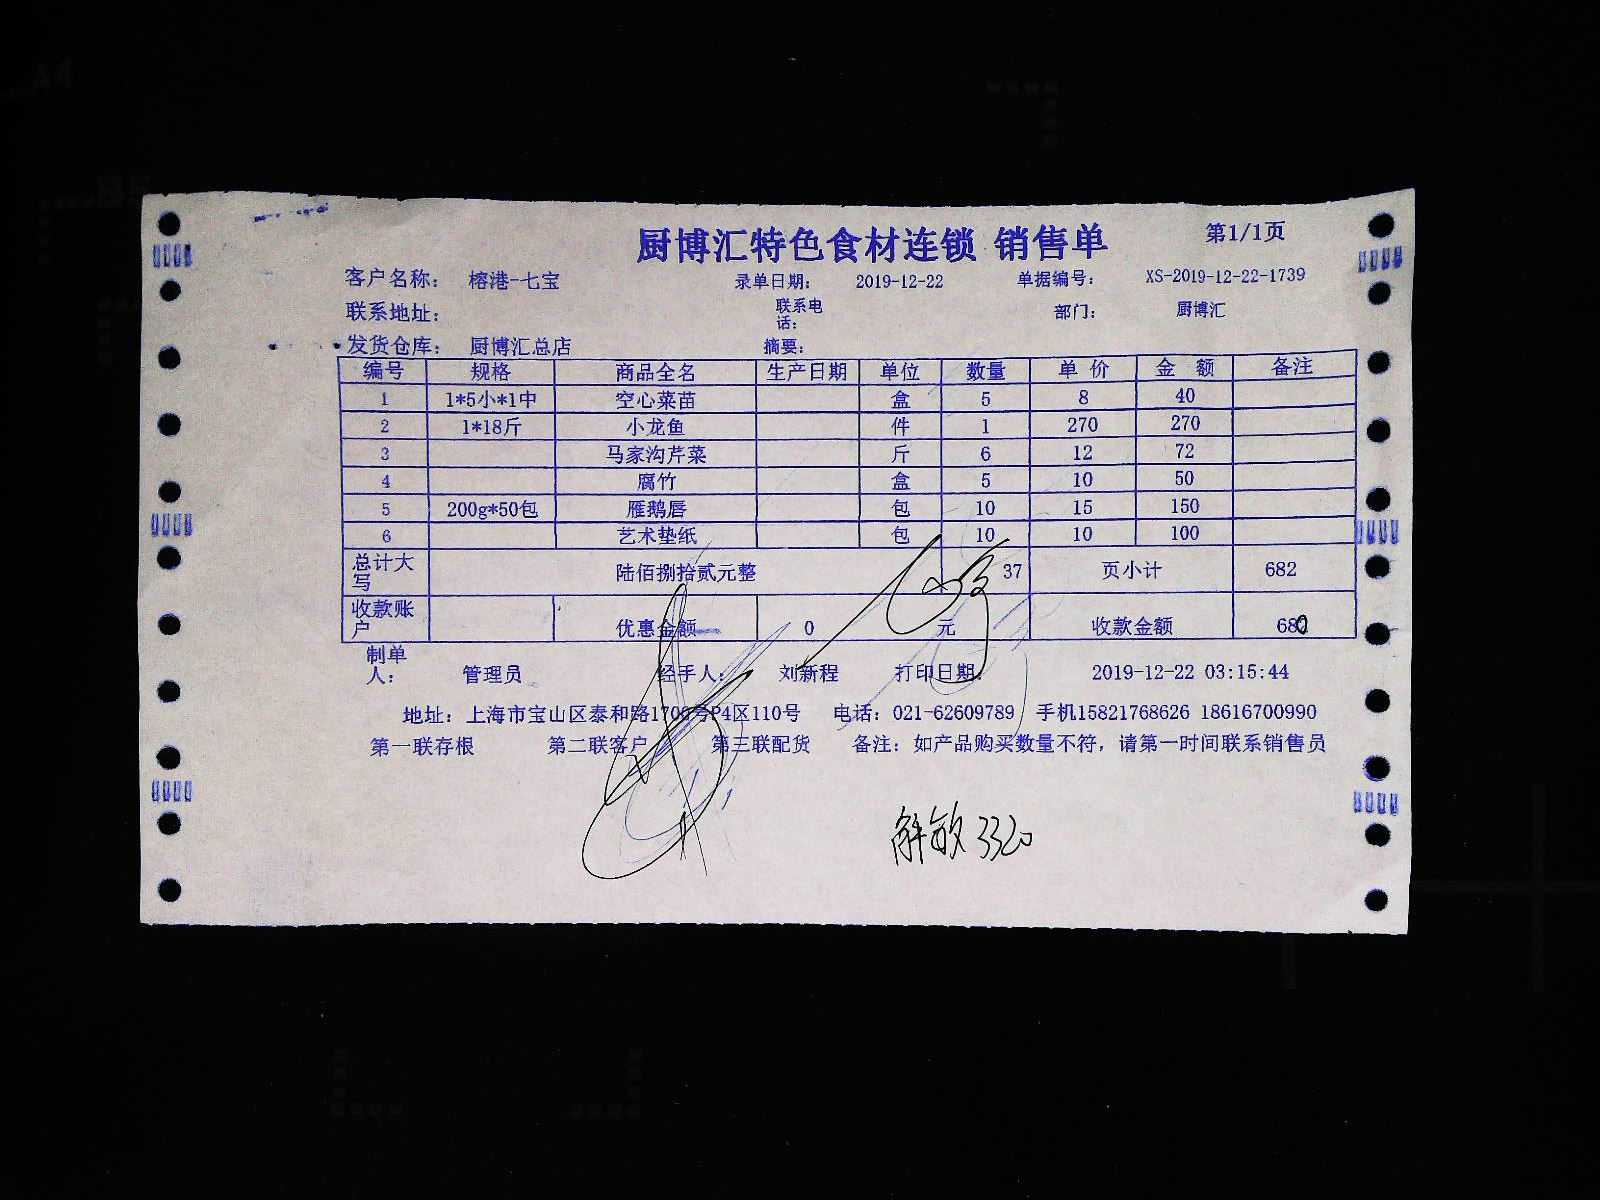 厨博汇特色食材连锁 销售单 第1/1页
客户名称： 榕港-七宝 录单日期： 2019-12-22 单据编号： XS-2019-12-22-1739
联系地址： 联系电话： 部门： 厨博汇
发货仓库： 厨博汇总店 摘要：
编号 规格 商品全名 生产日期 单位 数量 单 价 金 额 备注
1 1*5小*1中 空心菜苗 盒 5 8 40
2 1*18斤 小龙鱼 件 1 270 270
3 马家沟芹菜 斤 6 12 72
4 腐竹 盒 5 10 50
5 200g*50包 雁鹅唇 包 10 15 150
6 艺术垫纸 包 10 10 100
总计大写 陆佰捌拾贰元整 37 页小计 682
收款账户 优惠金额 0 元 收款金额 680
制单人： 管理员 经手人： 刘新程 打印日期： 2019-12-22 03:15:44
地址：上海市宝山区泰和路1700号P4区110号 电话：021-62609789 手机15821768626 18616700990
第一联存根 第二联客户 第三联配货 备注：如产品购买数量不符，请第一时间联系销售员
解敏 3320